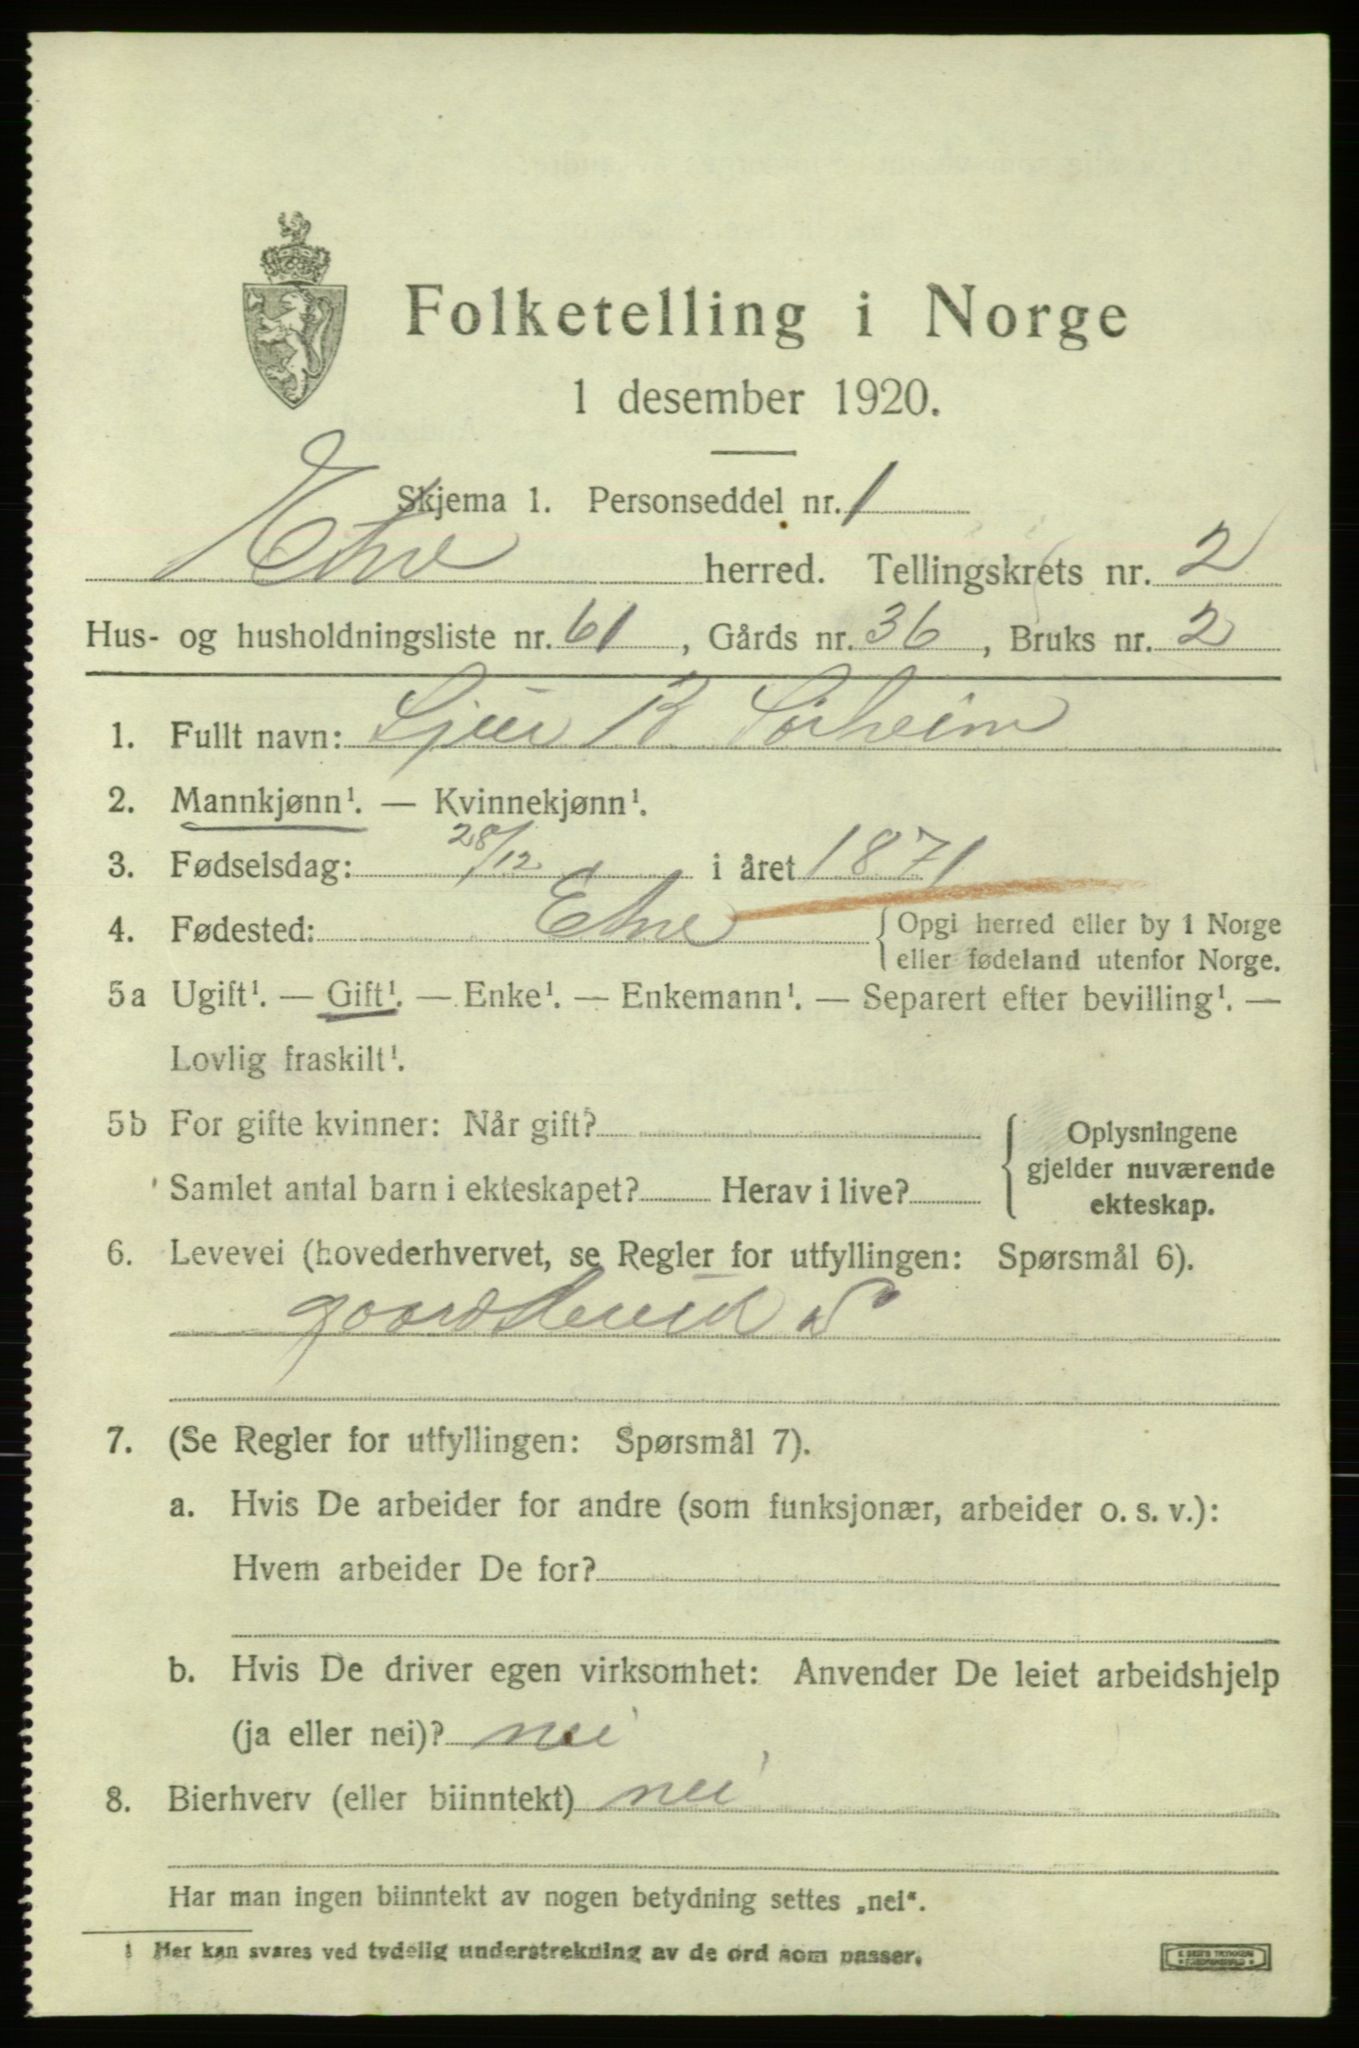 Folketelling i Norge
1 desember 1920.
Skjema 1. Personseddel nr. 1
Etne herred. Tellingskrets nr. 2
Hus- og husholdningsliste nr. 61, Gårds nr. 36, Bruks nr. 2
1. Fullt navn: Sjur B Sørheim
2. Mannkjønn¹. — Kvinnekjønn¹.
3. Fødselsdag: 28/12 i året 1871
4. Fødested: Etne {Opgi herred eller by i Norge
eller fødeland utenfor Norge.
5a Ugift¹. — Gift¹. — Enke¹. — Enkemann¹. — Separert efter bevilling¹. —
Lovlig fraskilt¹.
5b For gifte kvinner: Når gift?
Samlet antal barn i ekteskapet? Herav i live?
Oplysningene
gjelder nuværende
ekteskap.
6. Levevei (hovederhvervet, se Regler for utfyllingen: Spørsmål 6).
S
7. (Se Regler for utfyllingen: Spørsmål 7).
a. Hvis De arbeider for andre (som funksjonær, arbeider o. s. v.):
Hvem arbeider De for?
b. Hvis De driver egen virksomhet: Anvender De leiet arbeidshjelp
(ja eller nei)? nei
8. Bierhverv (eller biinntekt) nei
Har man ingen biinntekt av nogen betydning settes „nei“.
1 Her kan svares ved tydelig understrekning av de ord som passer.